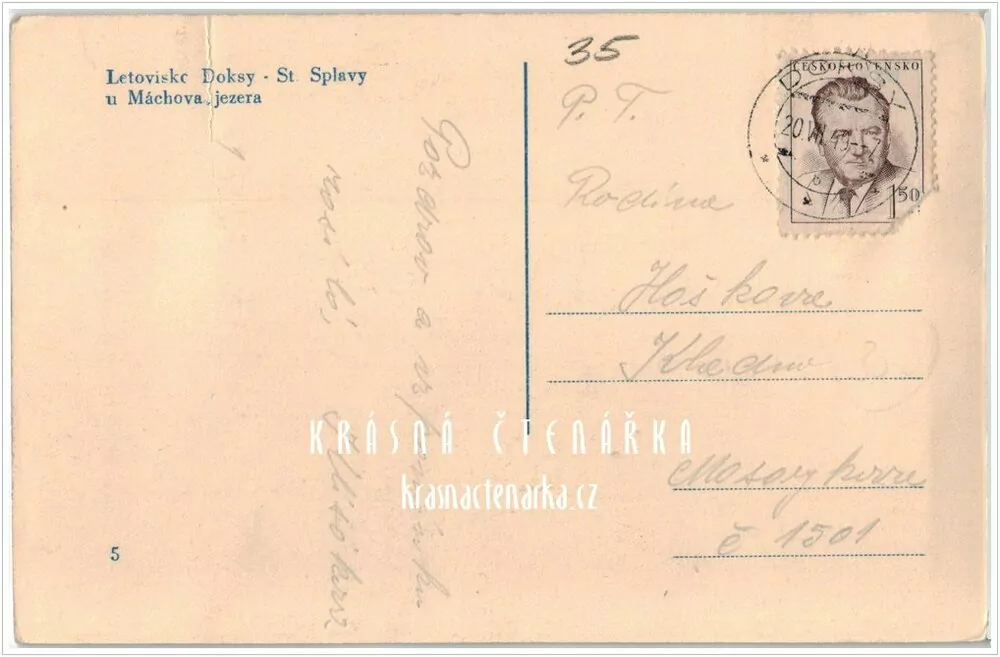 Letovisko Doksy - St. Splavy
u Máchova jezera
35
P. T.
Rodina
Hoškova
Kladno
Masarykova
č 1501
ČESKOSLOVENSKO
20.VII.49
1 50
Pozdrav a vzpomínku
zasílá
5
KRÁSNÁ ČTENÁŘKA
krasnactenarka.cz